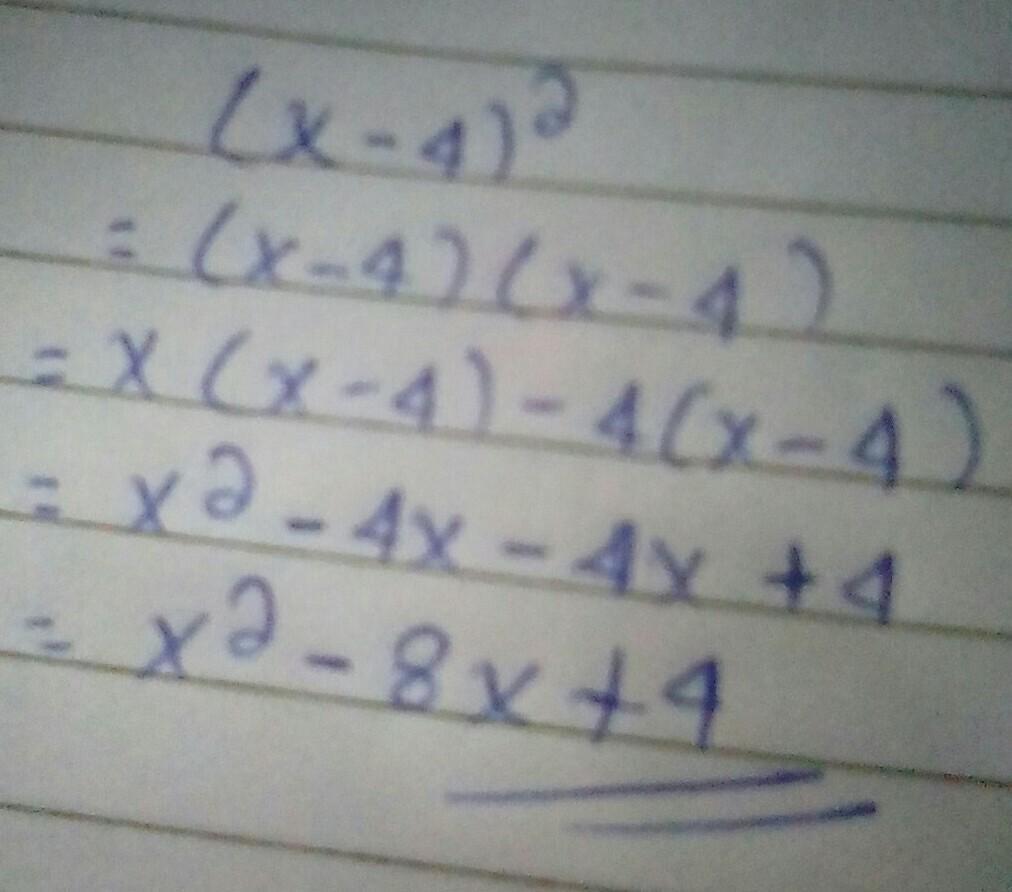 (x-4)²
= (x-4)(x-4)
= x(x-4)-4(x-4)
= x²-4x-4x+4
= x²-8x+4